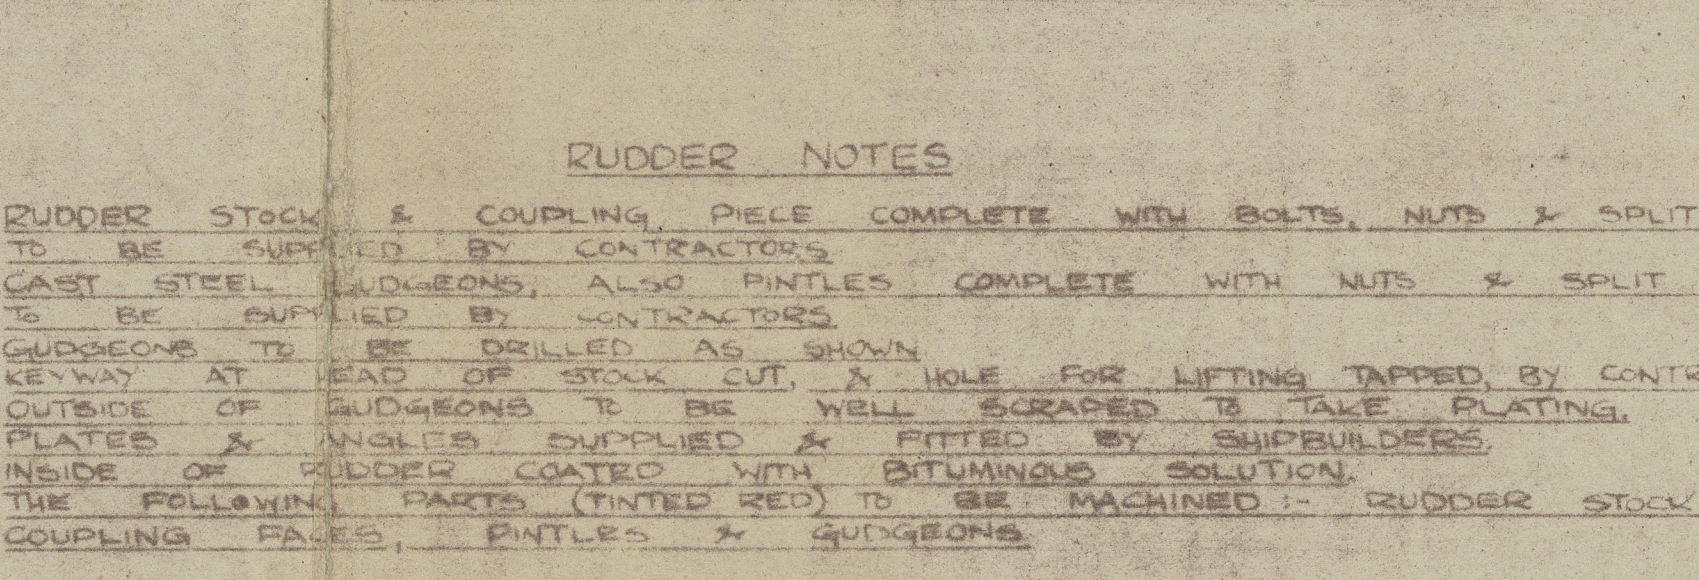 RUDDER NOTES
RUDDER STOCK & COUPLING PIECE COMPLETE WITH BOLTS, NUTS & SPLIT
TO BE SUPPLIED BY CONTRACTORS
CAST STEEL GUDGEONS, ALSO PINTLES COMPLETE WITH NUTS & SPLIT
TO BE SUPPLIED BY CONTRACTORS
GUDGEONS TO BE DRILLED AS SHOWN
KEYWAY AT HEAD OF STOCK CUT, & HOLE FOR LIFTING TAPPED, BY CONTR
OUTSIDE OF GUDGEONS TO BE WELL SCRAPED TO TAKE PLATING.
PLATES & ANGLES SUPPLIED & FITTED BY SHIPBUILDERS.
INSIDE OF RUDDER COATED WITH BITUMINOUS SOLUTION.
THE FOLLOWING PARTS (TINTED RED) TO BE MACHINED :- RUDDER STOCK
COUPLING FACES, PINTLES & GUDGEONS